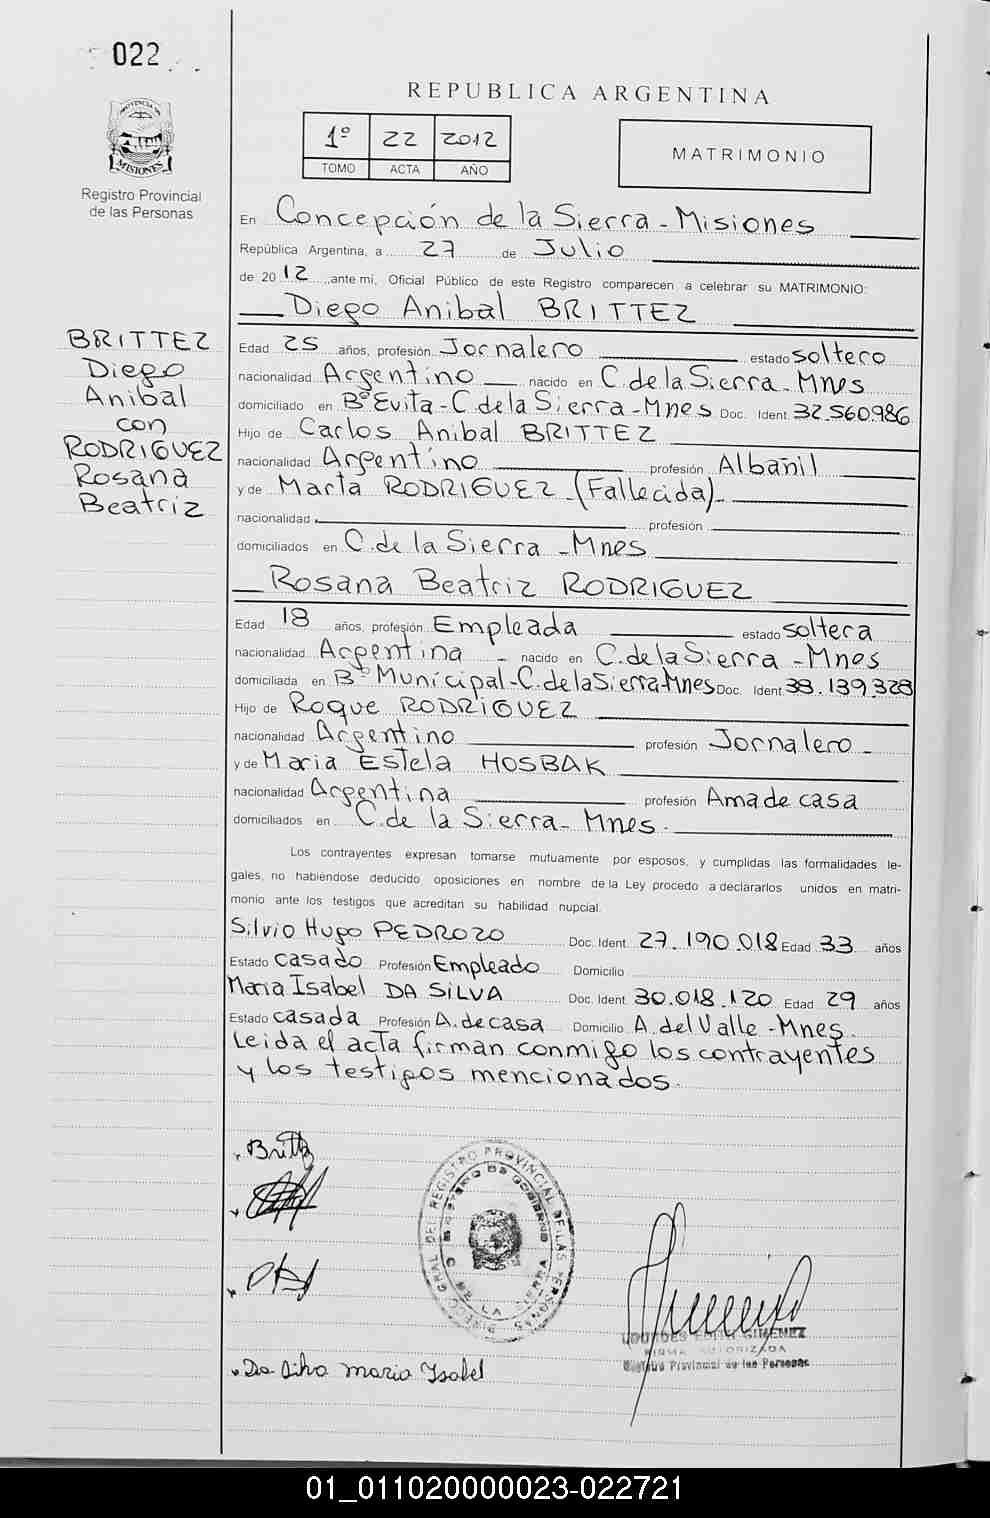 022
PROVINCIA DE
MISIONES
Registro Provincial
de las Personas
REPUBLICA ARGENTINA
1º 22 2012
TOMO ACTA AÑO
MATRIMONIO
En Concepción de la Sierra - Misiones
República Argentina, a 27 de Julio
de 2012, ante mi, Oficial Público de este Registro comparecen a celebrar su MATRIMONIO:
Diego Anibal BRITTEZ
BRITTEZ
Diego
Anibal
con
RODRIGUEZ
Rosana
Beatriz
Edad 25 años, profesión Jornalero estado soltero
nacionalidad Argentino nacido en C. de la Sierra - Mnes
domiciliado en Bº Evita - C. de la Sierra - Mnes Doc. Ident. 32.560.986
Hijo de Carlos Anibal BRITTEZ
nacionalidad Argentino profesión Albañil
y de Marta RODRIGUEZ - (Fallecida) -
nacionalidad profesión
domiciliados en C. de la Sierra - Mnes
Rosana Beatriz RODRIGUEZ
Edad 18 años, profesión Empleada estado soltera
nacionalidad Argentina - nacido en C. de la Sierra - Mnes
domiciliada en Bº Municipal - C. de la Sierra - Mnes Doc. Ident. 38.139.328
Hijo de Roque RODRIGUEZ
nacionalidad Argentino profesión Jornalero -
y de Maria Estela HOSBAK
nacionalidad Argentina profesión Ama de casa
domiciliados en C. de la Sierra - Mnes.
Los contrayentes expresan tomarse mutuamente por esposos, y cumplidas las formalidades le-
gales, no habiéndose deducido oposiciones en nombre de la Ley procedo a declararlos unidos en matri-
monio ante los testigos que acreditan su habilidad nupcial.
Silvio Hugo PEDROZO Doc. Ident. 27.190.018 Edad 33 años
Estado casado Profesión Empleado Domicilio
Maria Isabel DA SILVA Doc. Ident. 30.018.120 Edad 29 años
Estado casada Profesión A. de casa Domicilio A. del Valle - Mnes.
Leida el acta firman conmigo los contrayentes
y los testigos mencionados.
Britez
DIRECC. GRAL. DEL REGISTRO PROVINCIAL DE LAS PERSONAS
MINISTERIO DE GOBIERNO
C. DE LA SIERRA
LOURDES EDITH GIMENEZ
FIRMA AUTORIZADA
Registro Provincial de las Personas
Da Silva Maria Ysabel
01_011020000023-022721